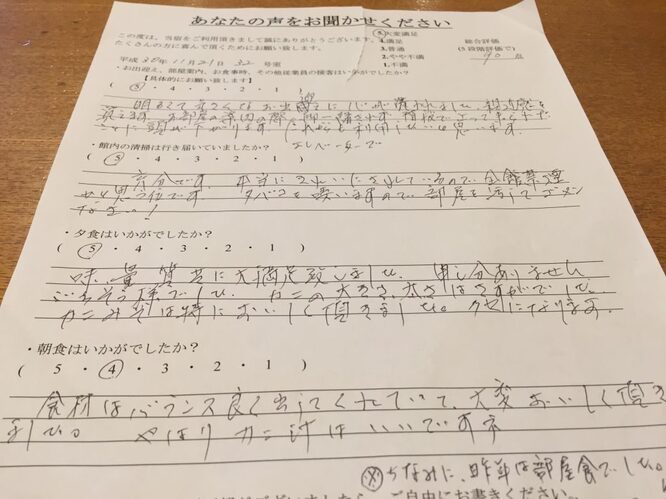 あなたの声をお聞かせください
この度は、当宿をご利用頂きまして誠にありがとうございます。
たくさんの方に喜んで頂くためにお願い致します。
⑤大変満足
4.満足
3.普通
2.やや不満
1.不満
総合評価
(5段階評価で)
点
平成30年11月21日 32号室
・お出迎え、部屋案内、お食事時、その他従業員の接客はいかがでしたか?
【具体的にお願い致します】
(⑤・4・3・2・1)
明るくて元気なお出迎えに心が洗われました。
お部屋の案内の際
に頭が下がります。これからも利用したいと思います。
エレベーターで
・館内の清掃は行き届いていましたか?
(⑤・4・3・2・1)
充分です。本当にきれいにされているので全館禁煙
でも良い位です。タバコを吸いますので部屋を汚してゴメン
なさい!
・夕食はいかがでしたか?
(⑤・4・3・2・1)
味、量、質共に大満足致しました。申し分ありません
ごちそう様でした。カニの大きさ、太さはさすがでした。
カニみそは特においしく頂きました。クセになります。
・朝食はいかがでしたか?
(5・④・3・2・1)
食材はバランス良く出てくれていて、大変おいしく頂き
ました。やはりカニ汁はいいですネ
ちなみに、昨年は部屋食でした。
ご自由にお書きください。